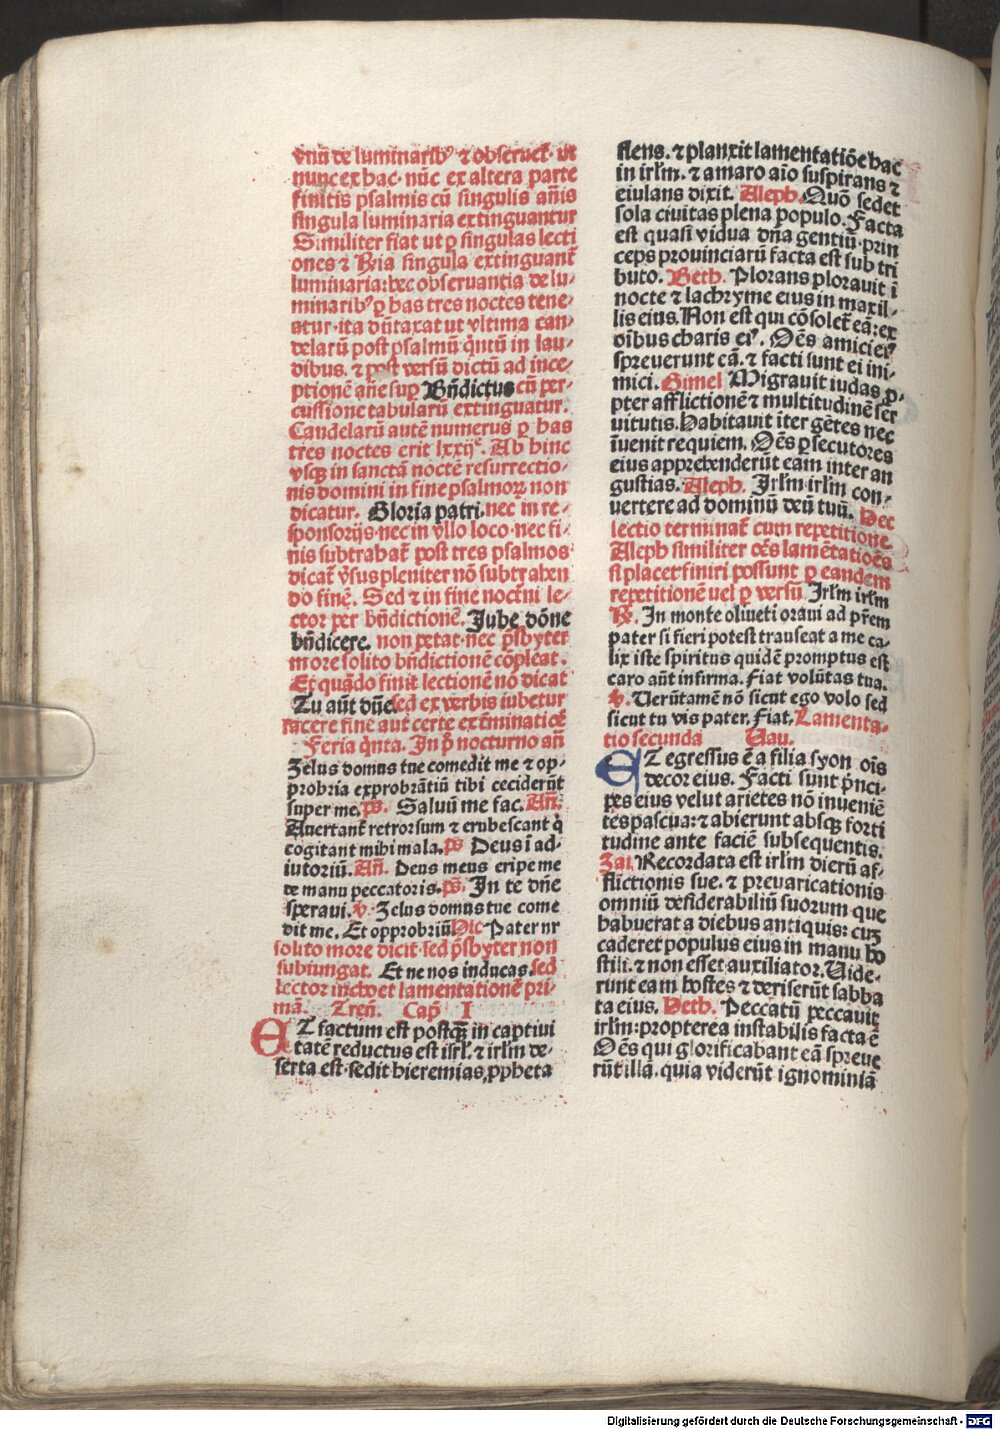 vnū de luminarib⁹ ⁊ obseruet̄· ut
nunc ex hac· nūc ex altera parte
finitis psalmis cū singulis an̄is
singula luminaria extinguantur
Similiter fiat ut ꝑ singulas lecti
ones ⁊ R̄ia singula extinguant̄
luminaria: hec obseruantia de lu⸗
minarib⁹ ꝑ has tres noctes tene⸗
atur· ita dūtaxat ut vltima can⸗
delarū post psalmū q̄ntū in lau⸗
dibus. ⁊ post versū dictū ad ince⸗
ptionē an̄e sup̄ Bn̄dictus cū per⸗
cussione tabularū extinguatur.
Candelarū autē numerus ꝑ has
tres noctes erit lxxij͛. Ab hinc
vsq̄ in sanctā noctē resurrectio⸗
nis domini in fine psalmoꝝ non
dicatur. Gloria patri. nec in re⸗
sponsorijs· nec in vllo loco· nec fi⸗
nis subtrahat̄ post tres psalmos
dicat̄ v̄sus pleniter nō subtrahen
do finē. Sed ⁊ in fine nocṫni le⸗
ctor per bn̄dictionē. Jube dōne
bn̄dicere. non petat· nec p̄sbyter
more solito bn̄dictionē cōpleat.
Et quādo finit lectionē nō dicat
Tu aūt dn̄e. sed ex verbis iubetur
facere finē aut certe exṫminatiōe
Feria q̄nta. In p̄ nocturno an̄
Zelus domus tue comedit me ⁊ op⸗
probria exprobrātiū tibi ceciderūt
super me. ps̄. Saluū me fac. An̄.
Auertant̄ retrorsum ⁊ erubescant q̇
cogitant mihi mala. ps̄ Deus ī ad⸗
iutoriū. An̄. Deus meus eripe me
de manu peccatoris. ps̄. In te dn̄e
speraui. v̄. Zelus domus tue come
dit me. Et opprobriū Hic Pater nr̄
solito more dicit· sed p̄sbyter non
subiungat. Et ne nos inducas. sed
lector inchoet lamentationē pri⸗
mā. Tren̄. Cap̄ I
ET factum est postq̄ꝫ in captiui
tatē reductus est isrl̄. ⁊ irl̄m de⸗
serta est· sedit hieremias ꝓpheta
flens. ⁊ planxit lamentatiōē hac
in irl̄m. ⁊ amaro aīo suspirans ⁊
eiulans dixit. Aleph. Quō sedet
sola ciuitas plena populo. Facta
est quasi vidua dn̄a gentiū· prin
ceps prouinciarū facta est sub tri
buto. Beth. Plorans plorauit ī
nocte ⁊ lachryme eius in maxil⸗
lis eius. Non est qui cōsolet̄ eā: ex
oībus charis ei⁹. Oēs amici ei⁹
spreuerunt eā. ⁊ facti sunt ei ini⸗
mici. Gimel Migrauit iudas ꝓ⸗
pter afflictionē ⁊ multitudinē ser
uitutis. Habitauit īter gētes nec
īuenit requiem. Oēs ꝑsecutores
eius apprehenderūt eam inter an
gustias. Aleph. Irl̄m irl̄m con⸗
uertere ad dominū deū tuū. Hec
lectio terminat̄ cum repetitione
Aleph similiter oēs lamētatiōēs
si placet· finiri possunt ꝑ eandem
repetitionē uel ꝑ versū Irl̄m irl̄m
R̄. In monte oliueti oraui ad pr̄em
pater si fieri potest transeat a me ca⸗
lix iste spiritus quidē promptus est
caro aūt infirma. Fiat volūtas tua.
v̄. Uerūtamē nō sicut ego volo sed
sicut tu vis pater. Fiat. Lamenta⸗
tio secunda Vau.
ET egressus ē a filia syon oīs
decor eius. Facti sunt p̄nci⸗
pes eius velut arietes nō inueniē
tes pascua: ⁊ abierunt absq̄ forti
tudine ante faciē subsequentis.
Zai. Recordata est irl̄m dierū af⸗
flictionis sue. ⁊ preuaricationis
omniū desiderabiliū suorum que
habuerat a diebus antiquis: cuꝫ
caderet populus eius in manu ho
stili. ⁊ non esset auxiliator. Uide⸗
runt eam hostes ⁊ deriserūt sabba
ta eius. Heth. Peccatū peccauit
irl̄m: propterea instabilis facta ē
Oēs qui glorificabant eā spreue
rūt illā. quia viderūt ignominiā
Digitalisierung gefördert durch die Deutsche Forschungsgemeinschaft - DFG